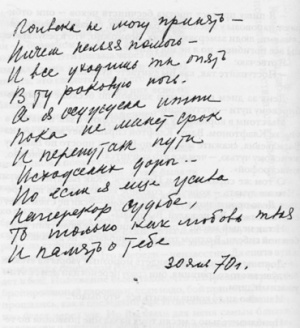 Полвека не могу принять –
Ничем нельзя помочь –
И все уходишь ты опять
В ту роковую ночь.
А я осуждена идти
Пока не минет срок
И перепутаны пути
Исхоженных дорог...
Но если я еще жива
Наперекор судьбе,
То только как любовь твоя
И память о тебе
30 янв 70 г.